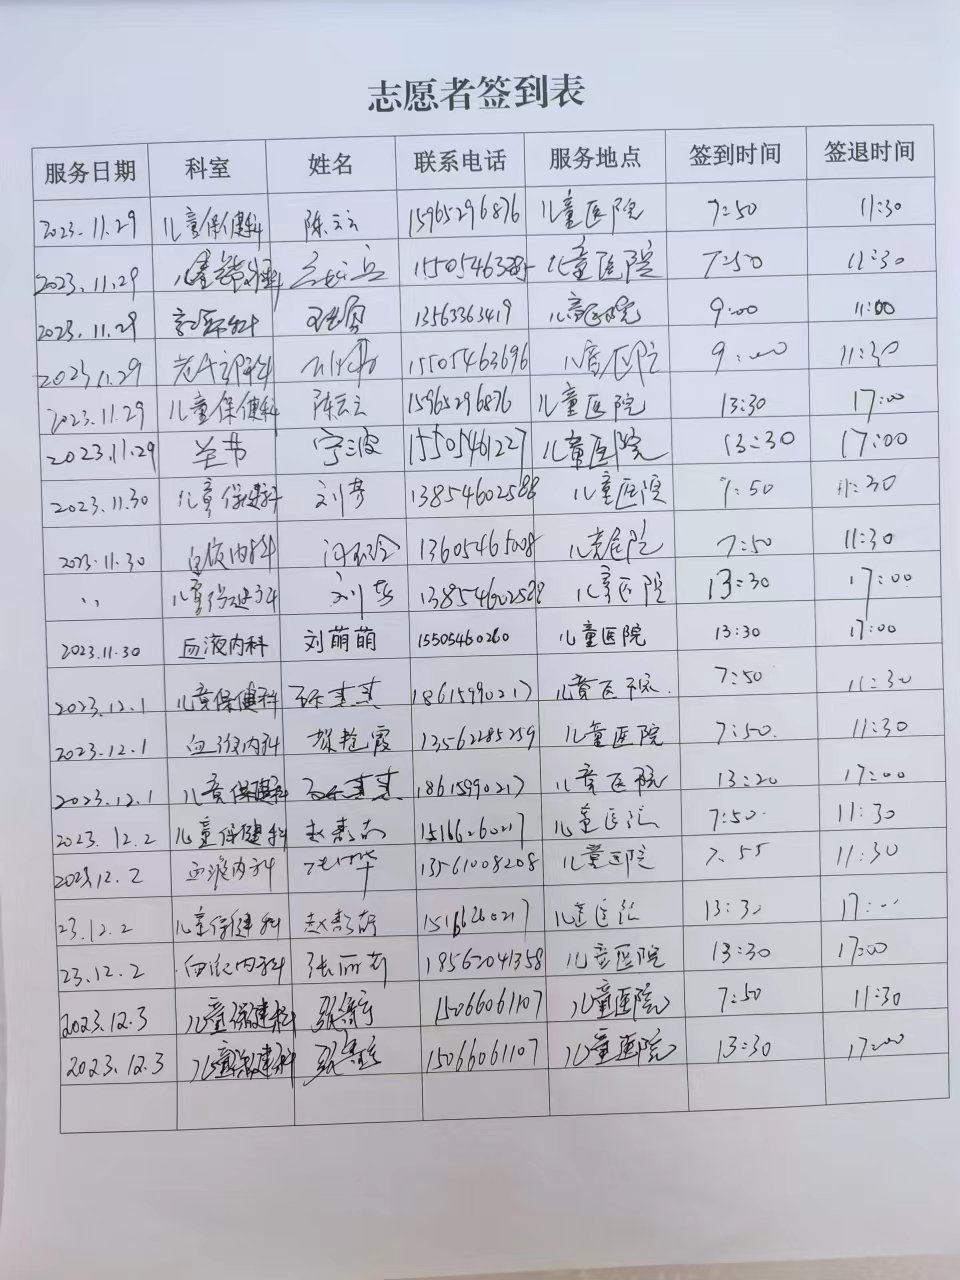 志愿者签到表
服务日期 科室 姓名 联系电话 服务地点 签到时间 签退时间
2023.11.29 儿童保健科 陈云云 15965296876 儿童医院 7:50 11:30
2023.11.29 儿童 儿童医院 7:50 11:30
2023.11.29 13563363419 儿童医院 9:00 11:00
2023.11.29 15505463696 儿童医院 9:00 11:30
2023.11.29 儿童保健科 陈云云 15965296876 儿童医院 13:30 17:00
2023.11.29 宁波 15505461227 儿童医院 13:30 17:00
2023.11.30 儿童保健科 13854602588 儿童医院 7:50 11:30
2023.11.30 血液内科 儿童医院 7:50 11:30
儿童保健科 13854602588 儿童医院 13:30 17:00
2023.11.30 血液内科 刘萌萌 15505460260 儿童医院 13:30 17:00
2023.12.1 儿童保健科 18615990217 儿童医院 7:50 11:30
2023.12.1 血液内科 13562285259 儿童医院 7:50 11:30
2023.12.1 儿童保健科 18615990217 儿童医院 13:20 17:00
2023.12.2 儿童保健科 儿童医院 7:50 11:30
2023.12.2 血液内科 13561008208 儿童医院 7:55 11:30
23.12.2 儿童保健科 15166260217 儿童医院 13:30 17:00
23.12.2 血液内科 18562041358 儿童医院 13:30 17:00
2023.12.3 儿童保健科 15066061107 儿童医院 7:50 11:30
2023.12.3 儿童保健科 15066061107 儿童医院 13:30 17:00